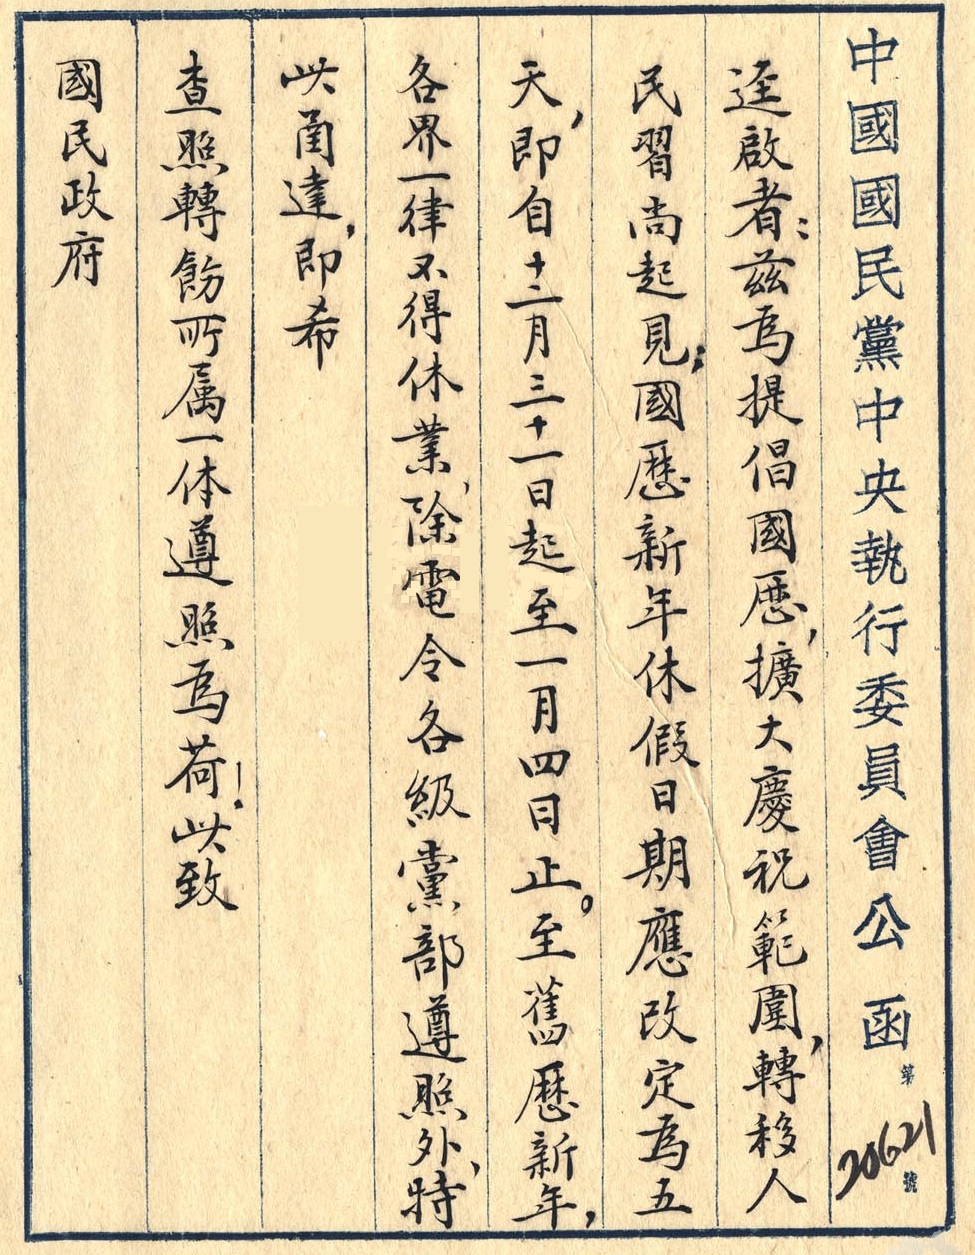 中國國民黨中央執行委員會公函 第20621號
逕啟者：茲為提倡國歷，擴大慶祝範圍，轉移人
民習尚起見；國歷新年休假日期應改定為五
天，即自十二月三十一日起至一月四日止。至舊歷新年，
各界一律不得休業、除電令各級黨部遵照外、特
此函達，即希
查照轉飭所属一体遵照為荷！此致
國民政府